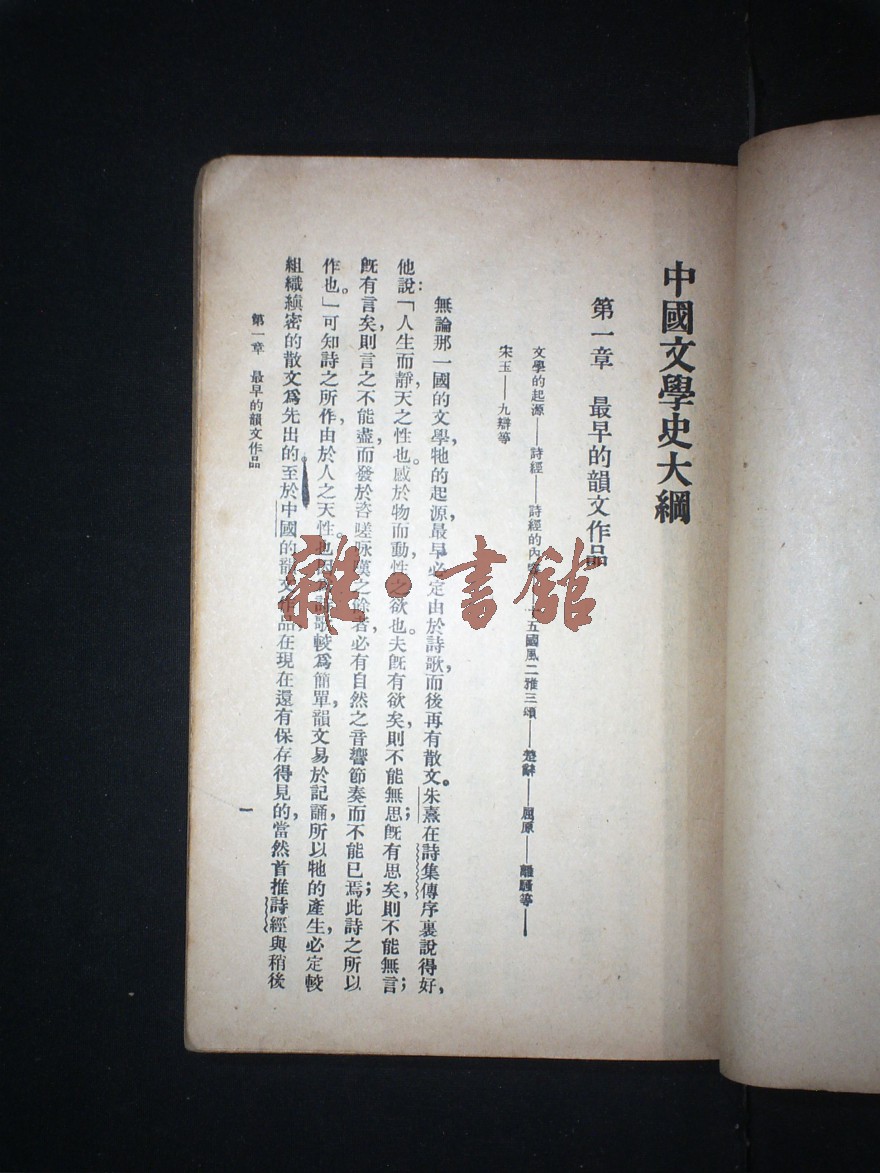 中國文學史大綱
第一章　最早的韻文作品
文學的起源——詩經——詩經的內　五國風二雅三頌——楚辭——屈原——離騷等——
宋玉——九辯等
無論那一國的文學，牠的起源，最早必定由於詩歌，而後再有散文。朱熹在詩集傳序裏說得好，
他說：「人生而靜，天之性也。感於物而動，性之欲也。夫旣有欲矣，則不能無思；旣有思矣，則不能無言；
旣有言矣，則言之不能盡，而發於咨嗟咏嘆之餘者，必有自然之音響節奏而不能已焉；此詩之所以
作也。」可知詩之所作，由於人之天性也因　詩歌較爲簡單，韻文易於記誦，所以牠的產生，必定較
組織縝密的散文爲先出的。至於中國的韻文作品，在現在還有保存得見的，當然首推詩經與稍後
第一章　最早的韻文作品
一
雜·書館